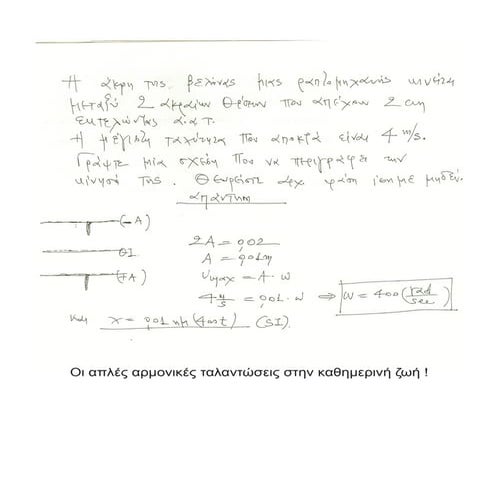 Η άκρη της βελόνας μιας ραπτομηχανής κινείται
μεταξύ 2 ακραίων θέσεων που απέχουν 2 cm
εκτελώντας α.α.τ.
Η μέγιστη ταχύτητα που αποκτά είναι 4 m/s.
Γράψτε μία σχέση που να περιγράφει την
κίνησή της. Θεωρείστε αρχ. φάση ίση με μηδέν.
απάντηση
(-A)
ΘΙ
(+A)
2A = 0,02
A = 0,01m
υmax = A·ω
4 m/s = 0,01·ω ⇒ ω = 400 (rad/sec)
και x = 0,01 ημ(400t) (SI).
Οι απλές αρμονικές ταλαντώσεις στην καθημερινή ζωή !